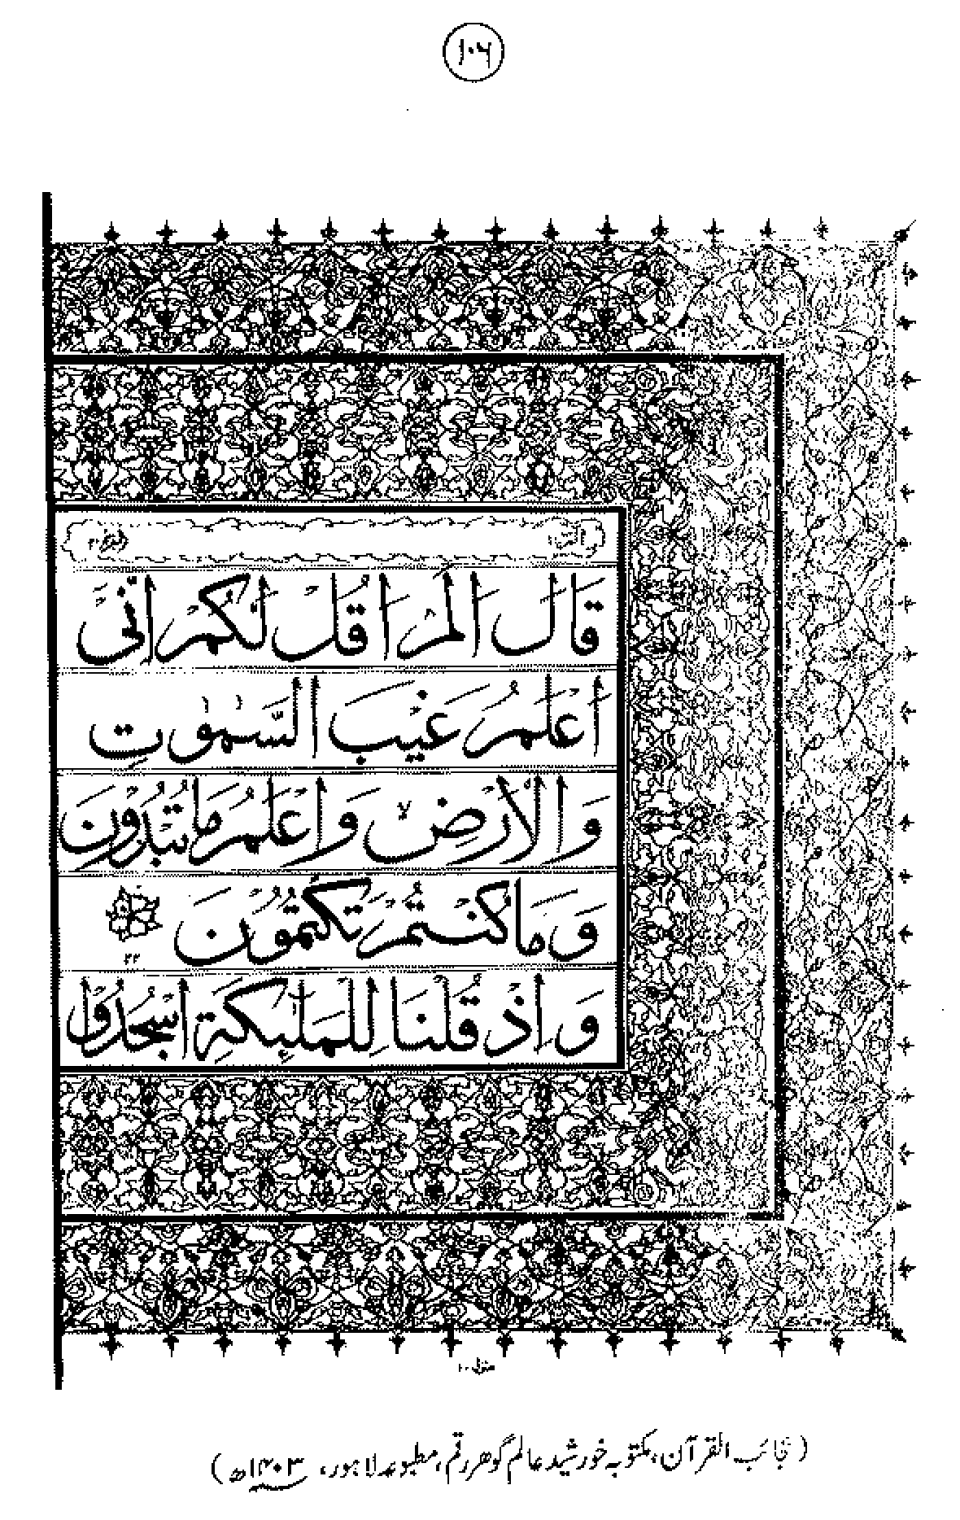 ۱۰۶
البقرة ٢
الٓمّٓ ١
قَالَ اَلَمْ اَقُلْ لَّكُمْ اِنِّیْۤ
اَعْلَمُ غَیْبَ السَّمٰوٰتِ
وَ الْاَرْضِ ۙ وَ اَعْلَمُ مَا تُبْدُوْنَ
وَ مَا كُنْتُمْ تَكْتُمُوْنَ
۳۳
وَ اِذْ قُلْنَا لِلْمَلٰٓىِٕكَةِ اسْجُدُوْا
منزل ۱
(عجائب القرآن، مکتوبہ خورشید عالم گوھر رقم، مطبوعہ لاہور، ۱۴۰۳ھ)